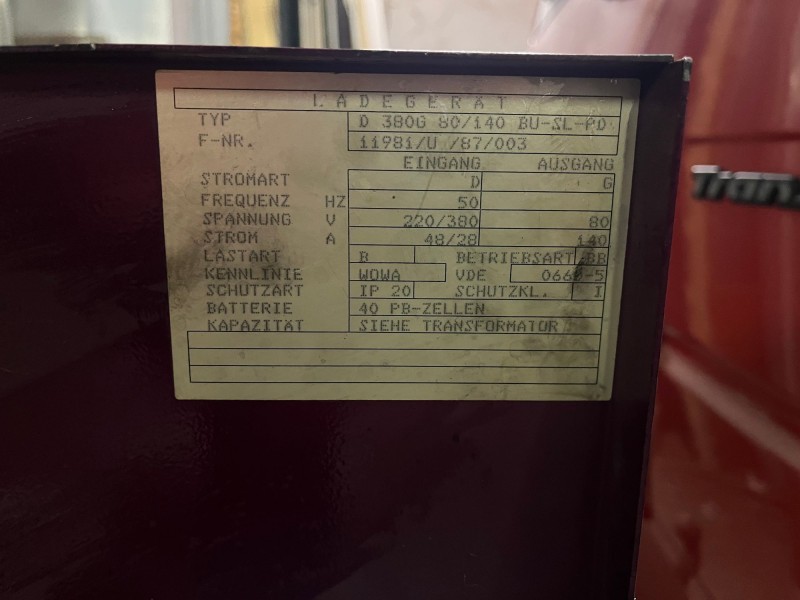 LADEGERÄT
TYP D 380G 80/140 BU-SL-PD
F-NR. 11981/U /87/003
EINGANG AUSGANG
STROMART D G
FREQUENZ HZ 50
SPANNUNG V 220/380 80
STROM A 48/28 140
LASTART B BETRIEBSART BB
KENNLINIE WOWA VDE 0660-5
SCHUTZART IP 20 SCHUTZKL. I
BATTERIE 40 PB-ZELLEN
KAPAZITÄT SIEHE TRANSFORMATOR
Tran